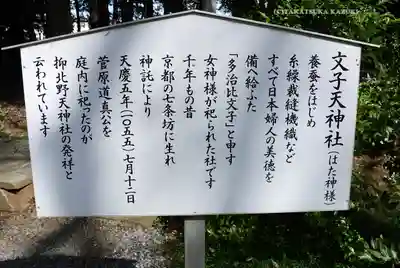 (C)TAKATSUKA KAZUKI
文子天神社(はた神様)
養蚕をはじめ
糸繰裁縫機織など
すべて日本婦人の美徳を
備へ給ふた
「多治比文子」と申す
女神様が祀られた社です
千年もの昔
京都の七条坊に生れ
神託により
天慶五年(一〇五五)七月十二日
菅原道真公を
庭内に祀ったのが
抑北野天神社の発祥と
云われています